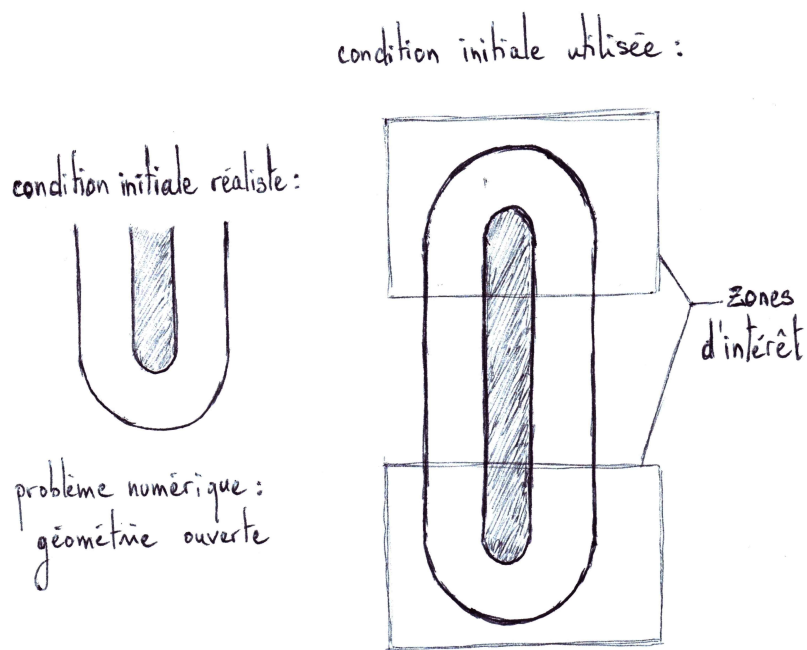 condition initiale utilisée :
condition initiale réaliste :
zones
d'intérêt
problème numérique :
géométrie ouverte